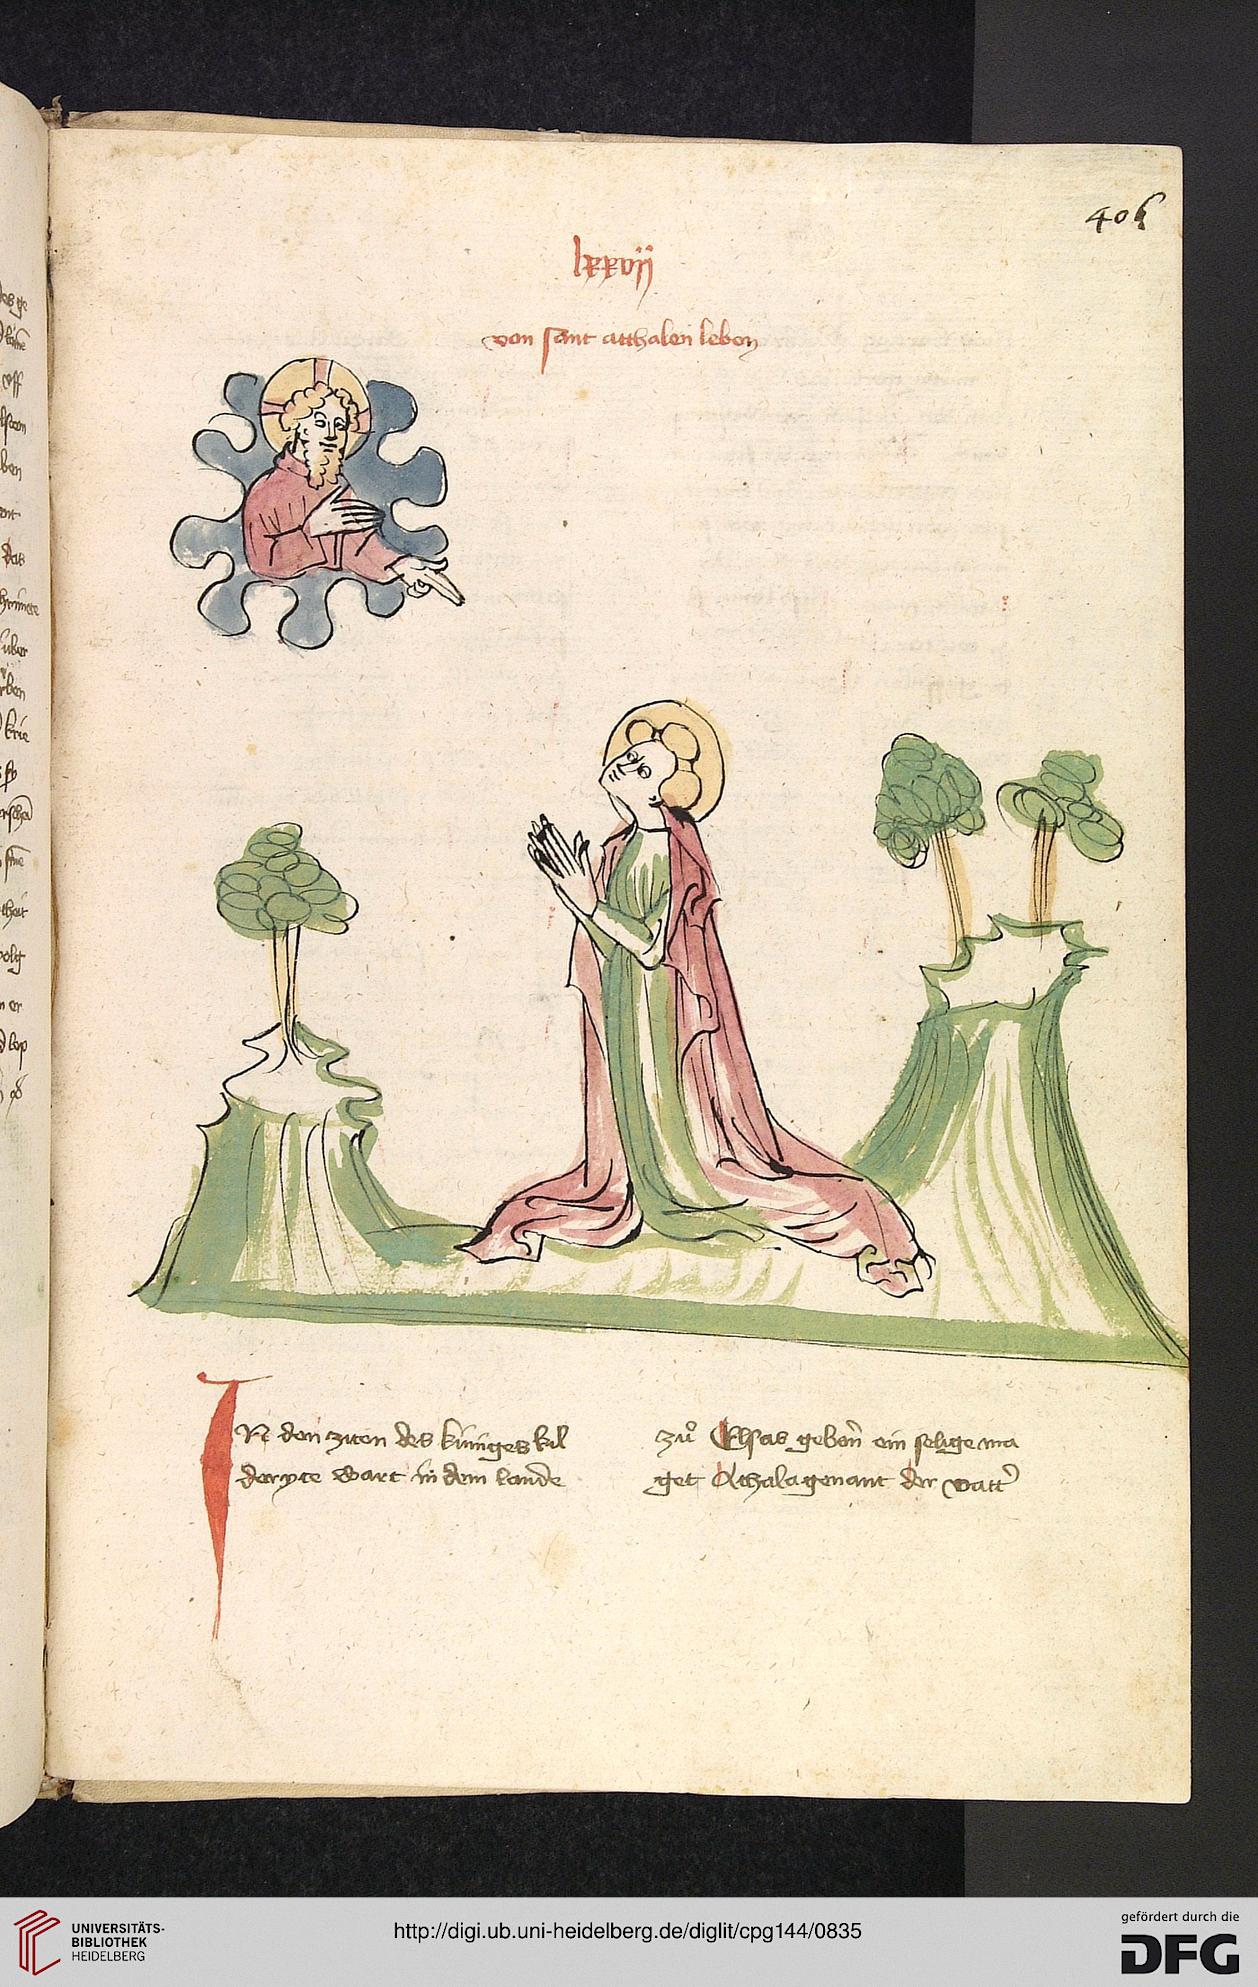 406
lxxvij
von sant atthalen leben
IN den ziten des küniges kil
deryce wart in dem lande
zuͦ Elsas geborn ein selige ma
get Athala genant der vatter
UNIVERSITÄTS-
BIBLIOTHEK
HEIDELBERG
http://digi.ub.uni-heidelberg.de/diglit/cpg144/0835
gefördert durch die
DFG